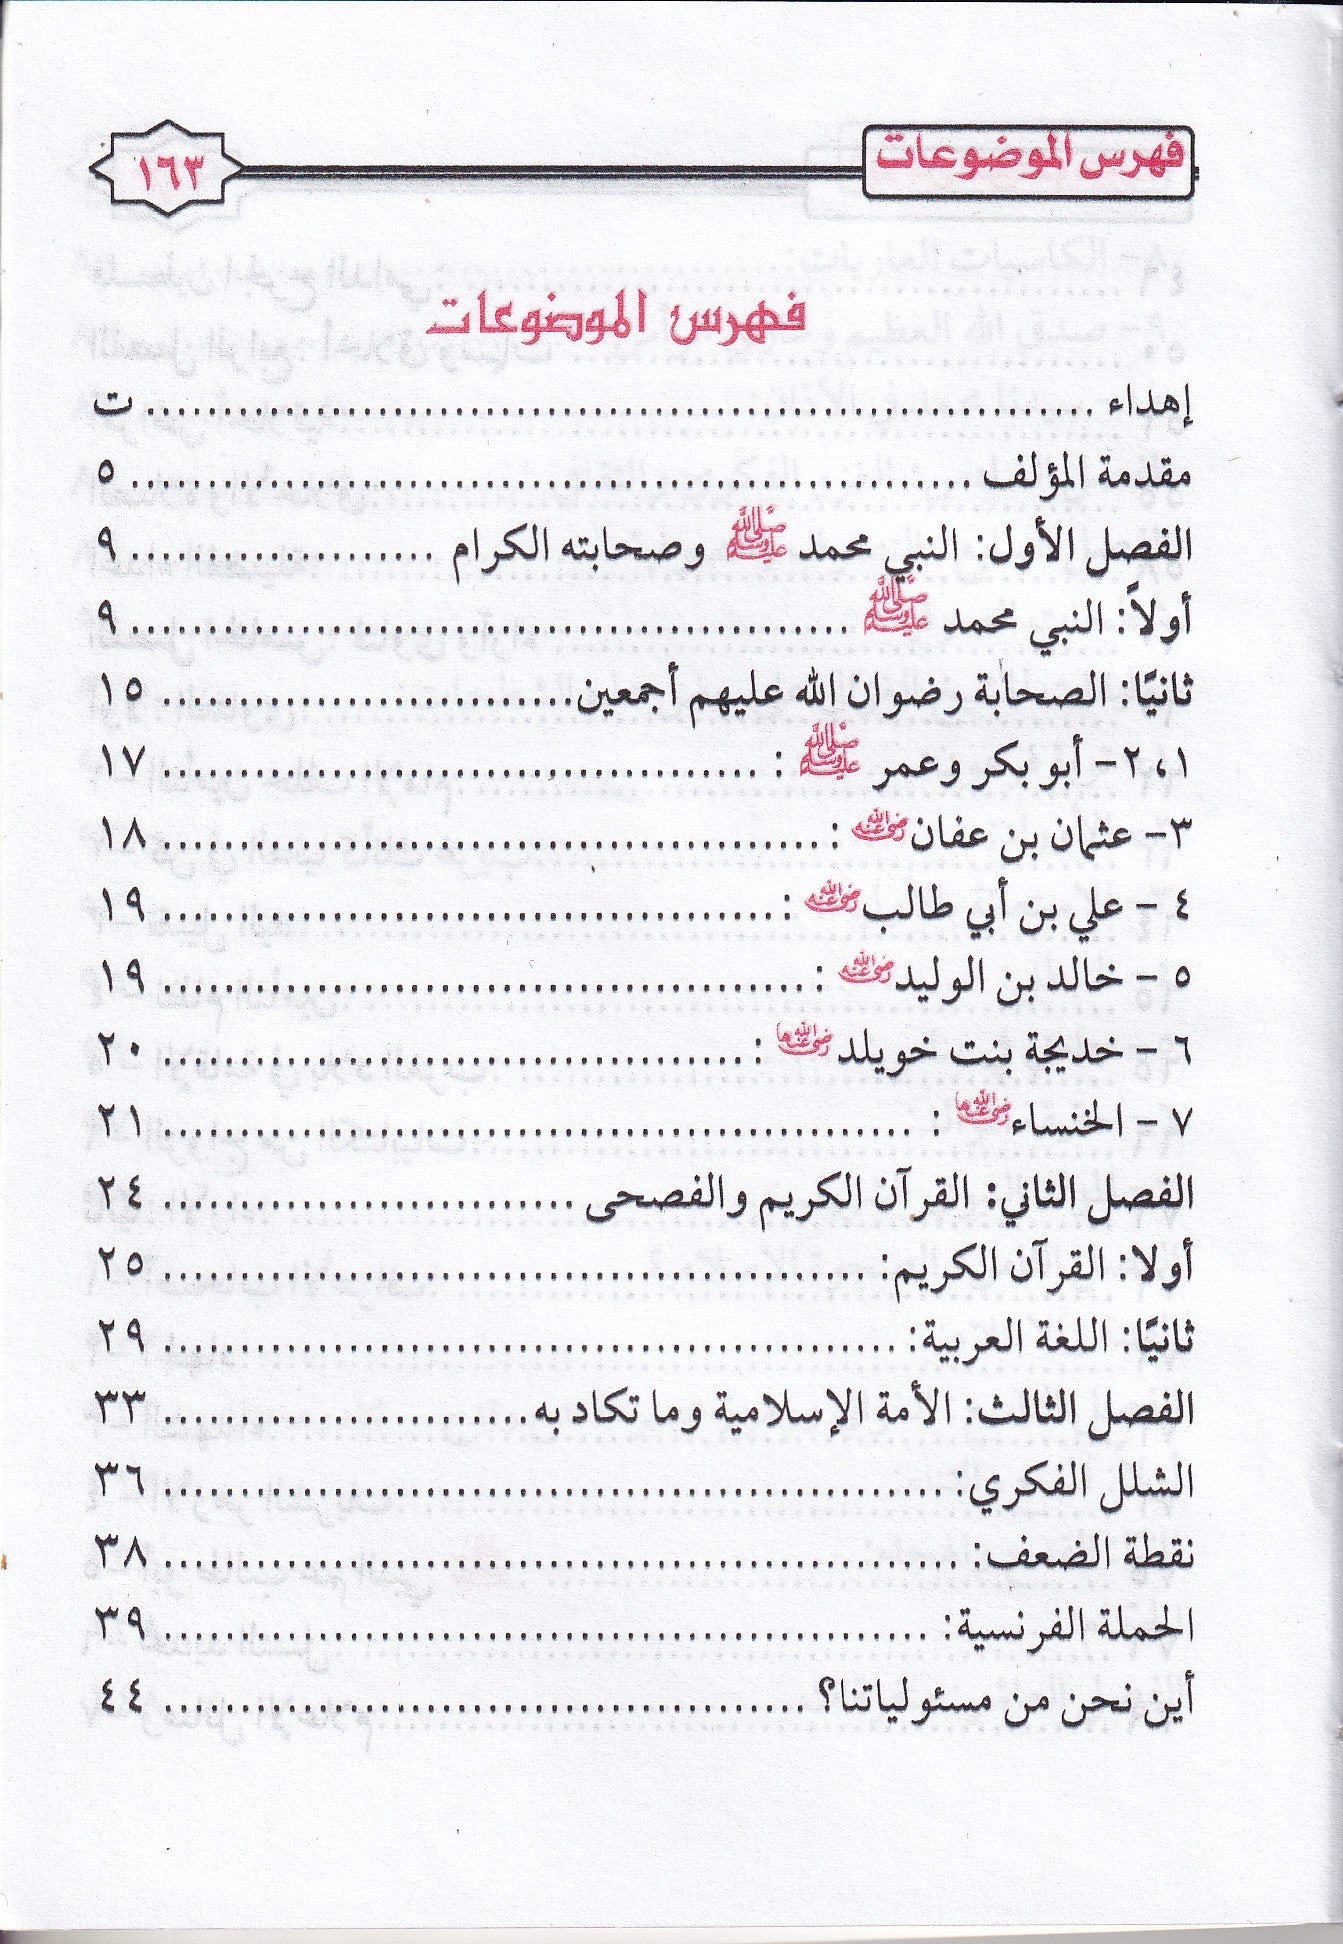 فهرس الموضوعات
١٦٣
فهرس الموضوعات
إهداء ................................................................ ت
مقدمة المؤلف ........................................................ ٥
الفصل الأول: النبي محمد ﷺ وصحابته الكرام .................... ٩
أولاً: النبي محمد ﷺ ................................................ ٩
ثانيًا: الصحابة رضوان الله عليهم أجمعين............................ ١٥
١، ٢- أبو بكر وعمر ﷺ : ....................................... ١٧
٣- عثمان بن عفان رضي الله عنه : ............................................ ١٨
٤ - علي بن أبي طالب رضي الله عنه :......................................... ١٩
٥ - خالد بن الوليد رضي الله عنه : ........................................... ١٩
٦ - خديجة بنت خويلد رضي الله عنها : ....................................... ٢٠
٧ - الخنساء رضي الله عنها : .................................................. ٢١
الفصل الثاني: القرآن الكريم والفصحى ............................ ٢٤
أولا: القرآن الكريم: ............................................... ٢٥
ثانيًا: اللغة العربية: ................................................. ٢٩
الفصل الثالث: الأمة الإسلامية وما تكاد به........................ ٣٣
الشلل الفكري: .................................................... ٣٦
نقطة الضعف: ..................................................... ٣٨
الحملة الفرنسية: ................................................... ٣٩
أين نحن من مسئولياتنا؟ ........................................... ٤٤